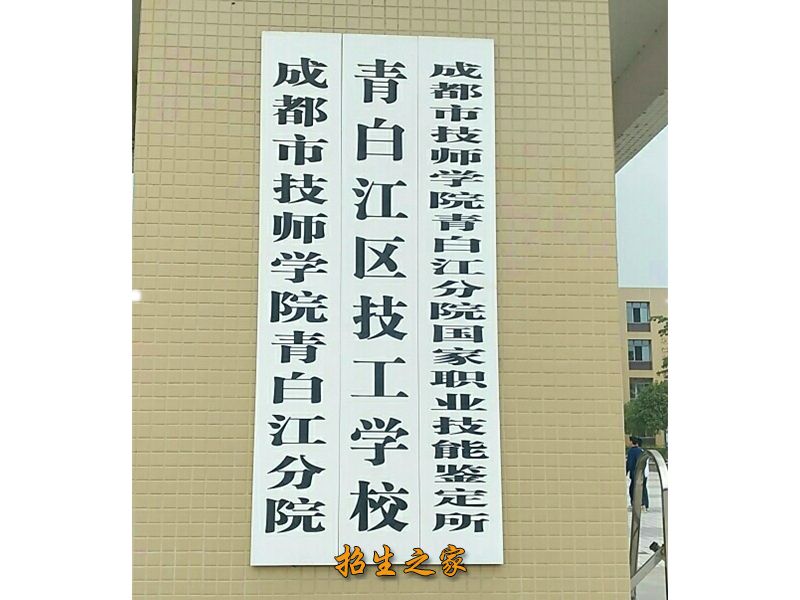 成都市技师学院青白江分院
青白江区技工学校
成都市技师学院青白江分院国家职业技能鉴定所
招生之家